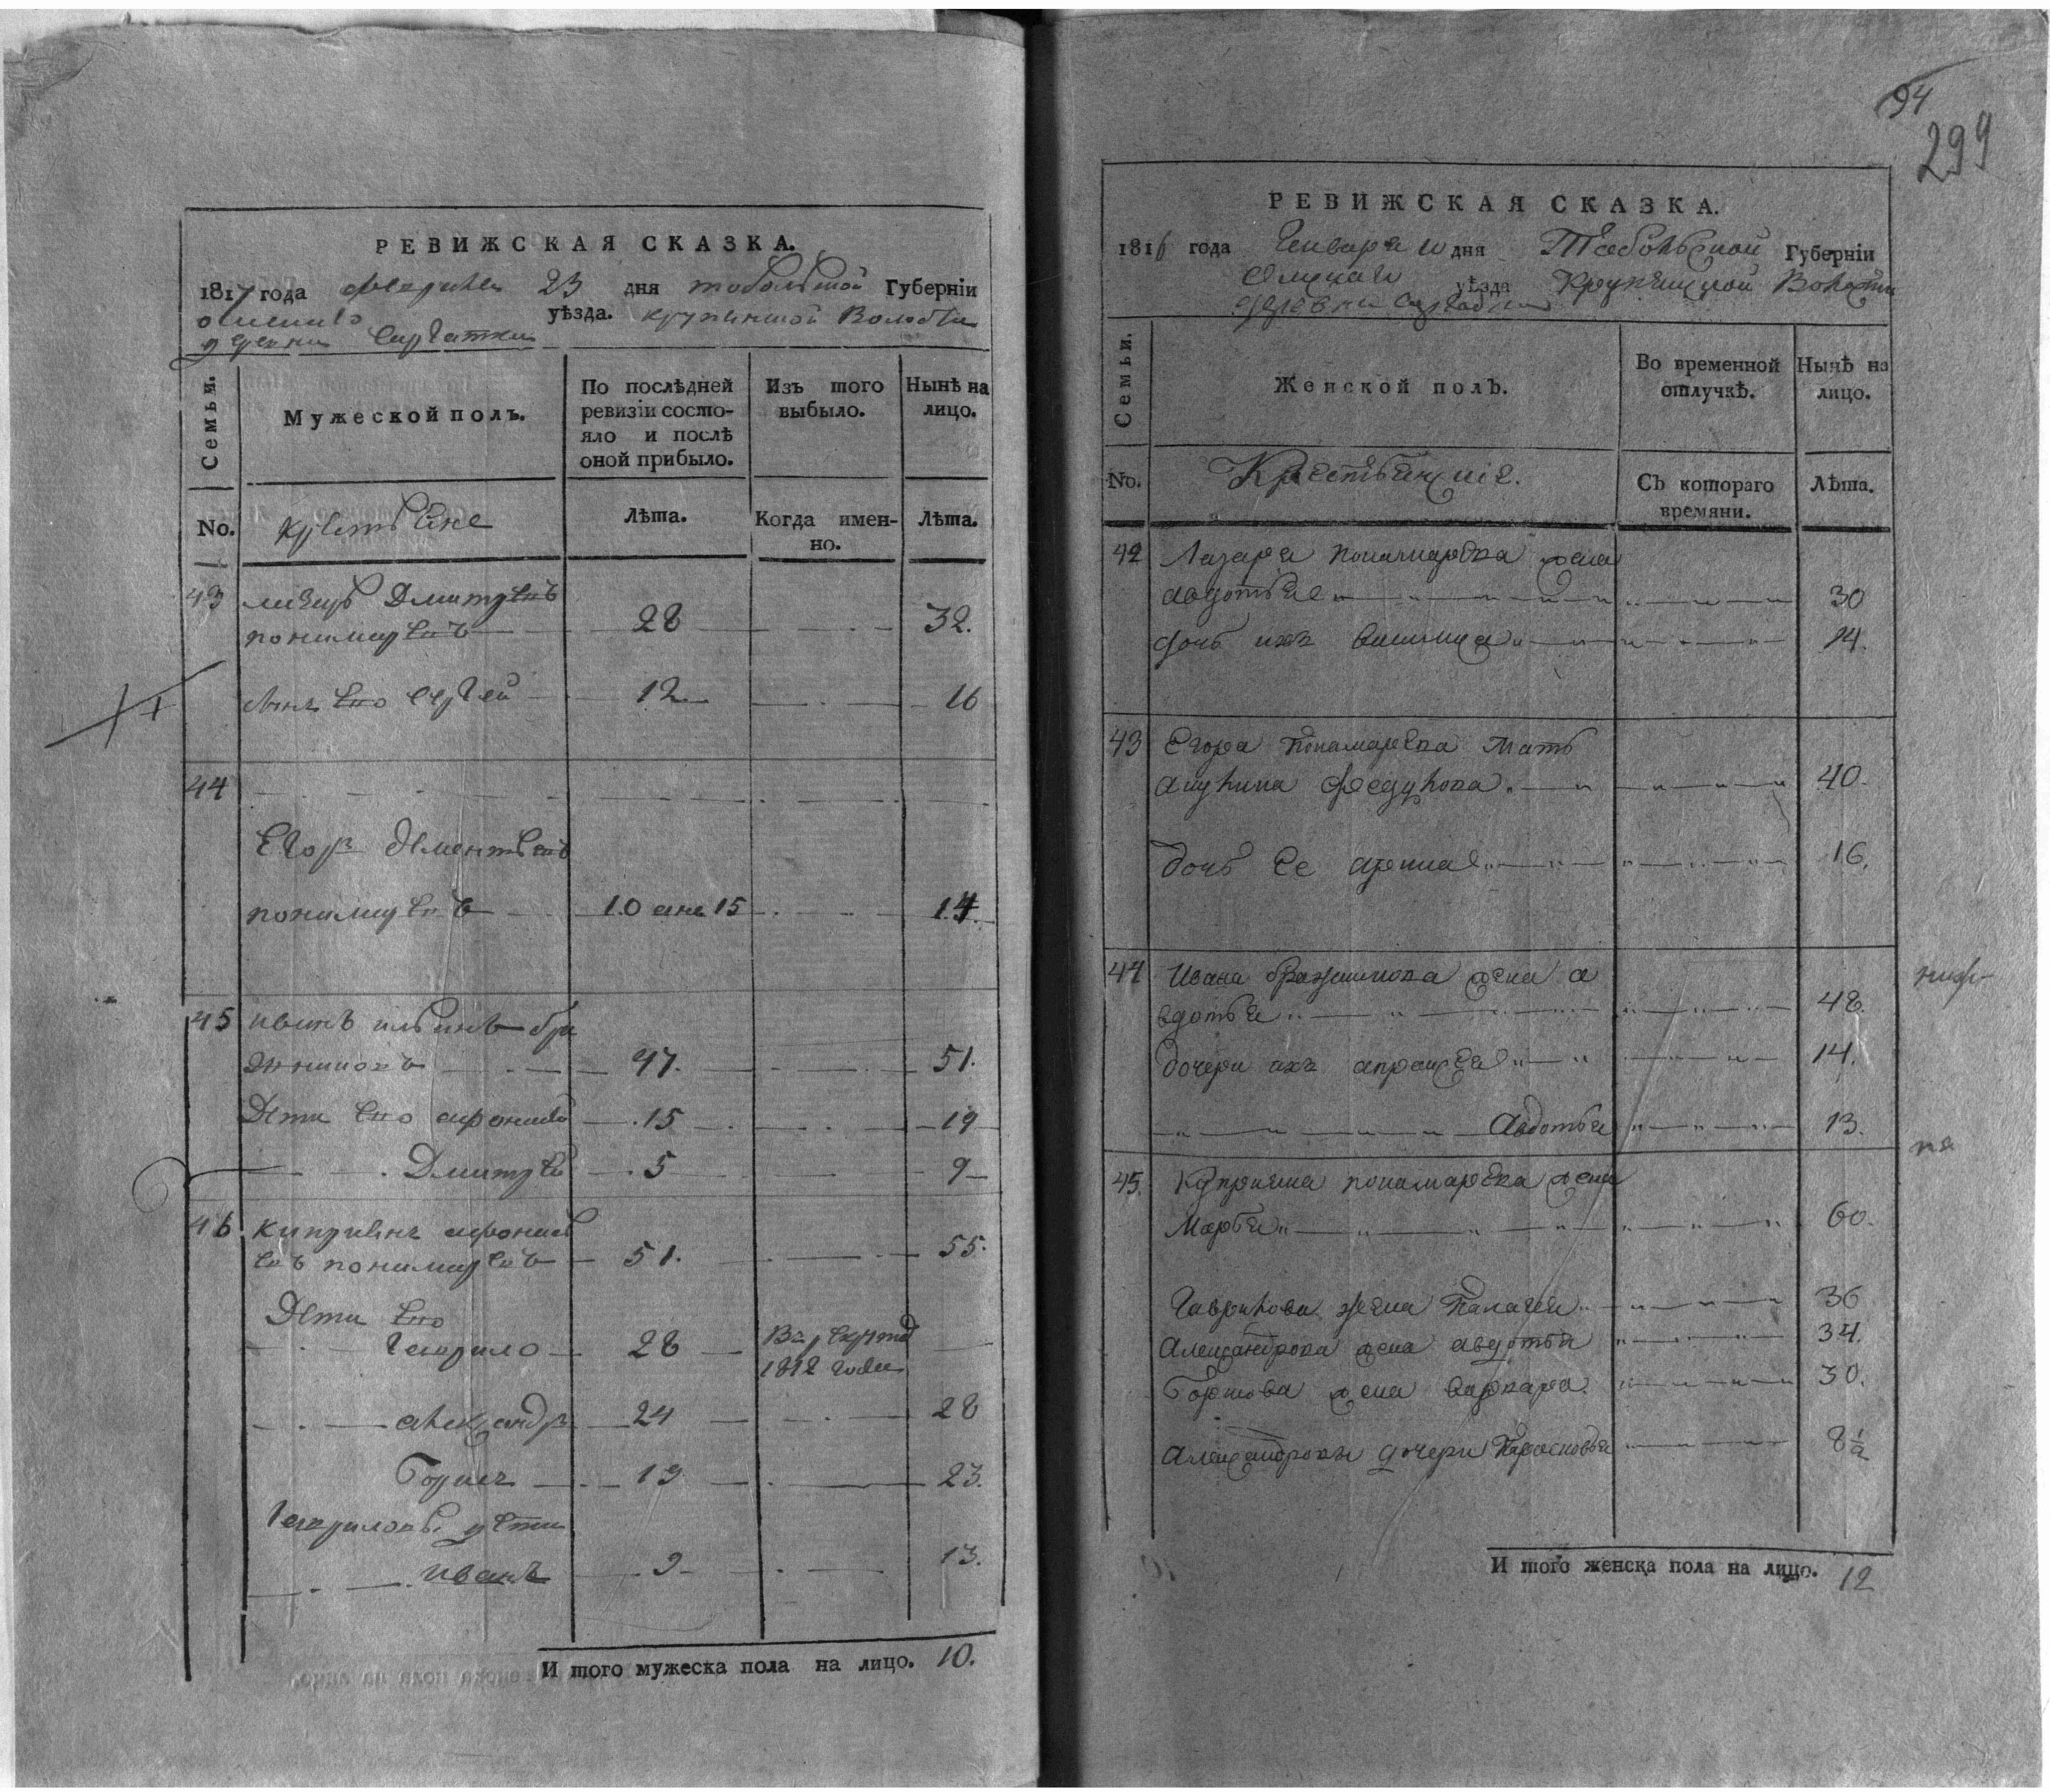 РЕВИЖСКАЯ СКАЗКА.
1817 года февраля 23 дня тобольской Губерніи
омскаго уѣзда. крупинской Волости
деревни Саргатки
Семьи.
Мужеской полъ.
По послѣдней ревизіи состо-
яло и послѣ
оной прибыло.
Изъ того
выбыло.
Нынѣ на
лицо.
No.
крестьяне
Лѣта.
Когда имен-
но.
Лѣта.
43 лазарь Дмитревъ
пономаревъ 28 32.
сынъ ево сергей 12 16
44
Егоръ Дементьевъ
пономаревъ 10 15 14.
45 иванъ ильинъ бра
жниковъ 47. 51.
Дети ево афонасей 15 19
Дмитрей 5 9
46 киприянъ афонась
евъ пономаревъ 51. 55.
Дети ево
Гаврило 28 Въ рекруты
1812 года
александръ 24 28
Борисъ 19 23.
Гавриловы дети
иванъ 9 13.
И того мужеска пола на лицо. 10.
94
299
РЕВИЖСКАЯ СКАЗКА.
1816 года Генваря дня Тобольской Губерніи
Омскаго уѣзда Крупянской Волости
деревни Саргатки
Семьи.
Женской полъ.
Во временной
отлучкѣ.
Нынѣ на
лицо.
No.
Крестьянскіе.
Съ котораго
времяни.
Лѣта.
42 Лазаря пономарева жена
авдотья 30
дочь ихъ 14.
43 Егора Пономарева мать
акулина федулова 40.
дочь ее 16.
44 Ивана бражникова жена а
вдотья 48.
дочери ихъ 14.
Авдотья 13.
45. Куприяна пономарева жена
Марья 60.
Гаврилова жена Палагея 36
Александрова жена авдотья 34.
Борисова жена варвара 30.
Александровы дочери Парасковья 8 1/2
И того женска пола на лицо. 12